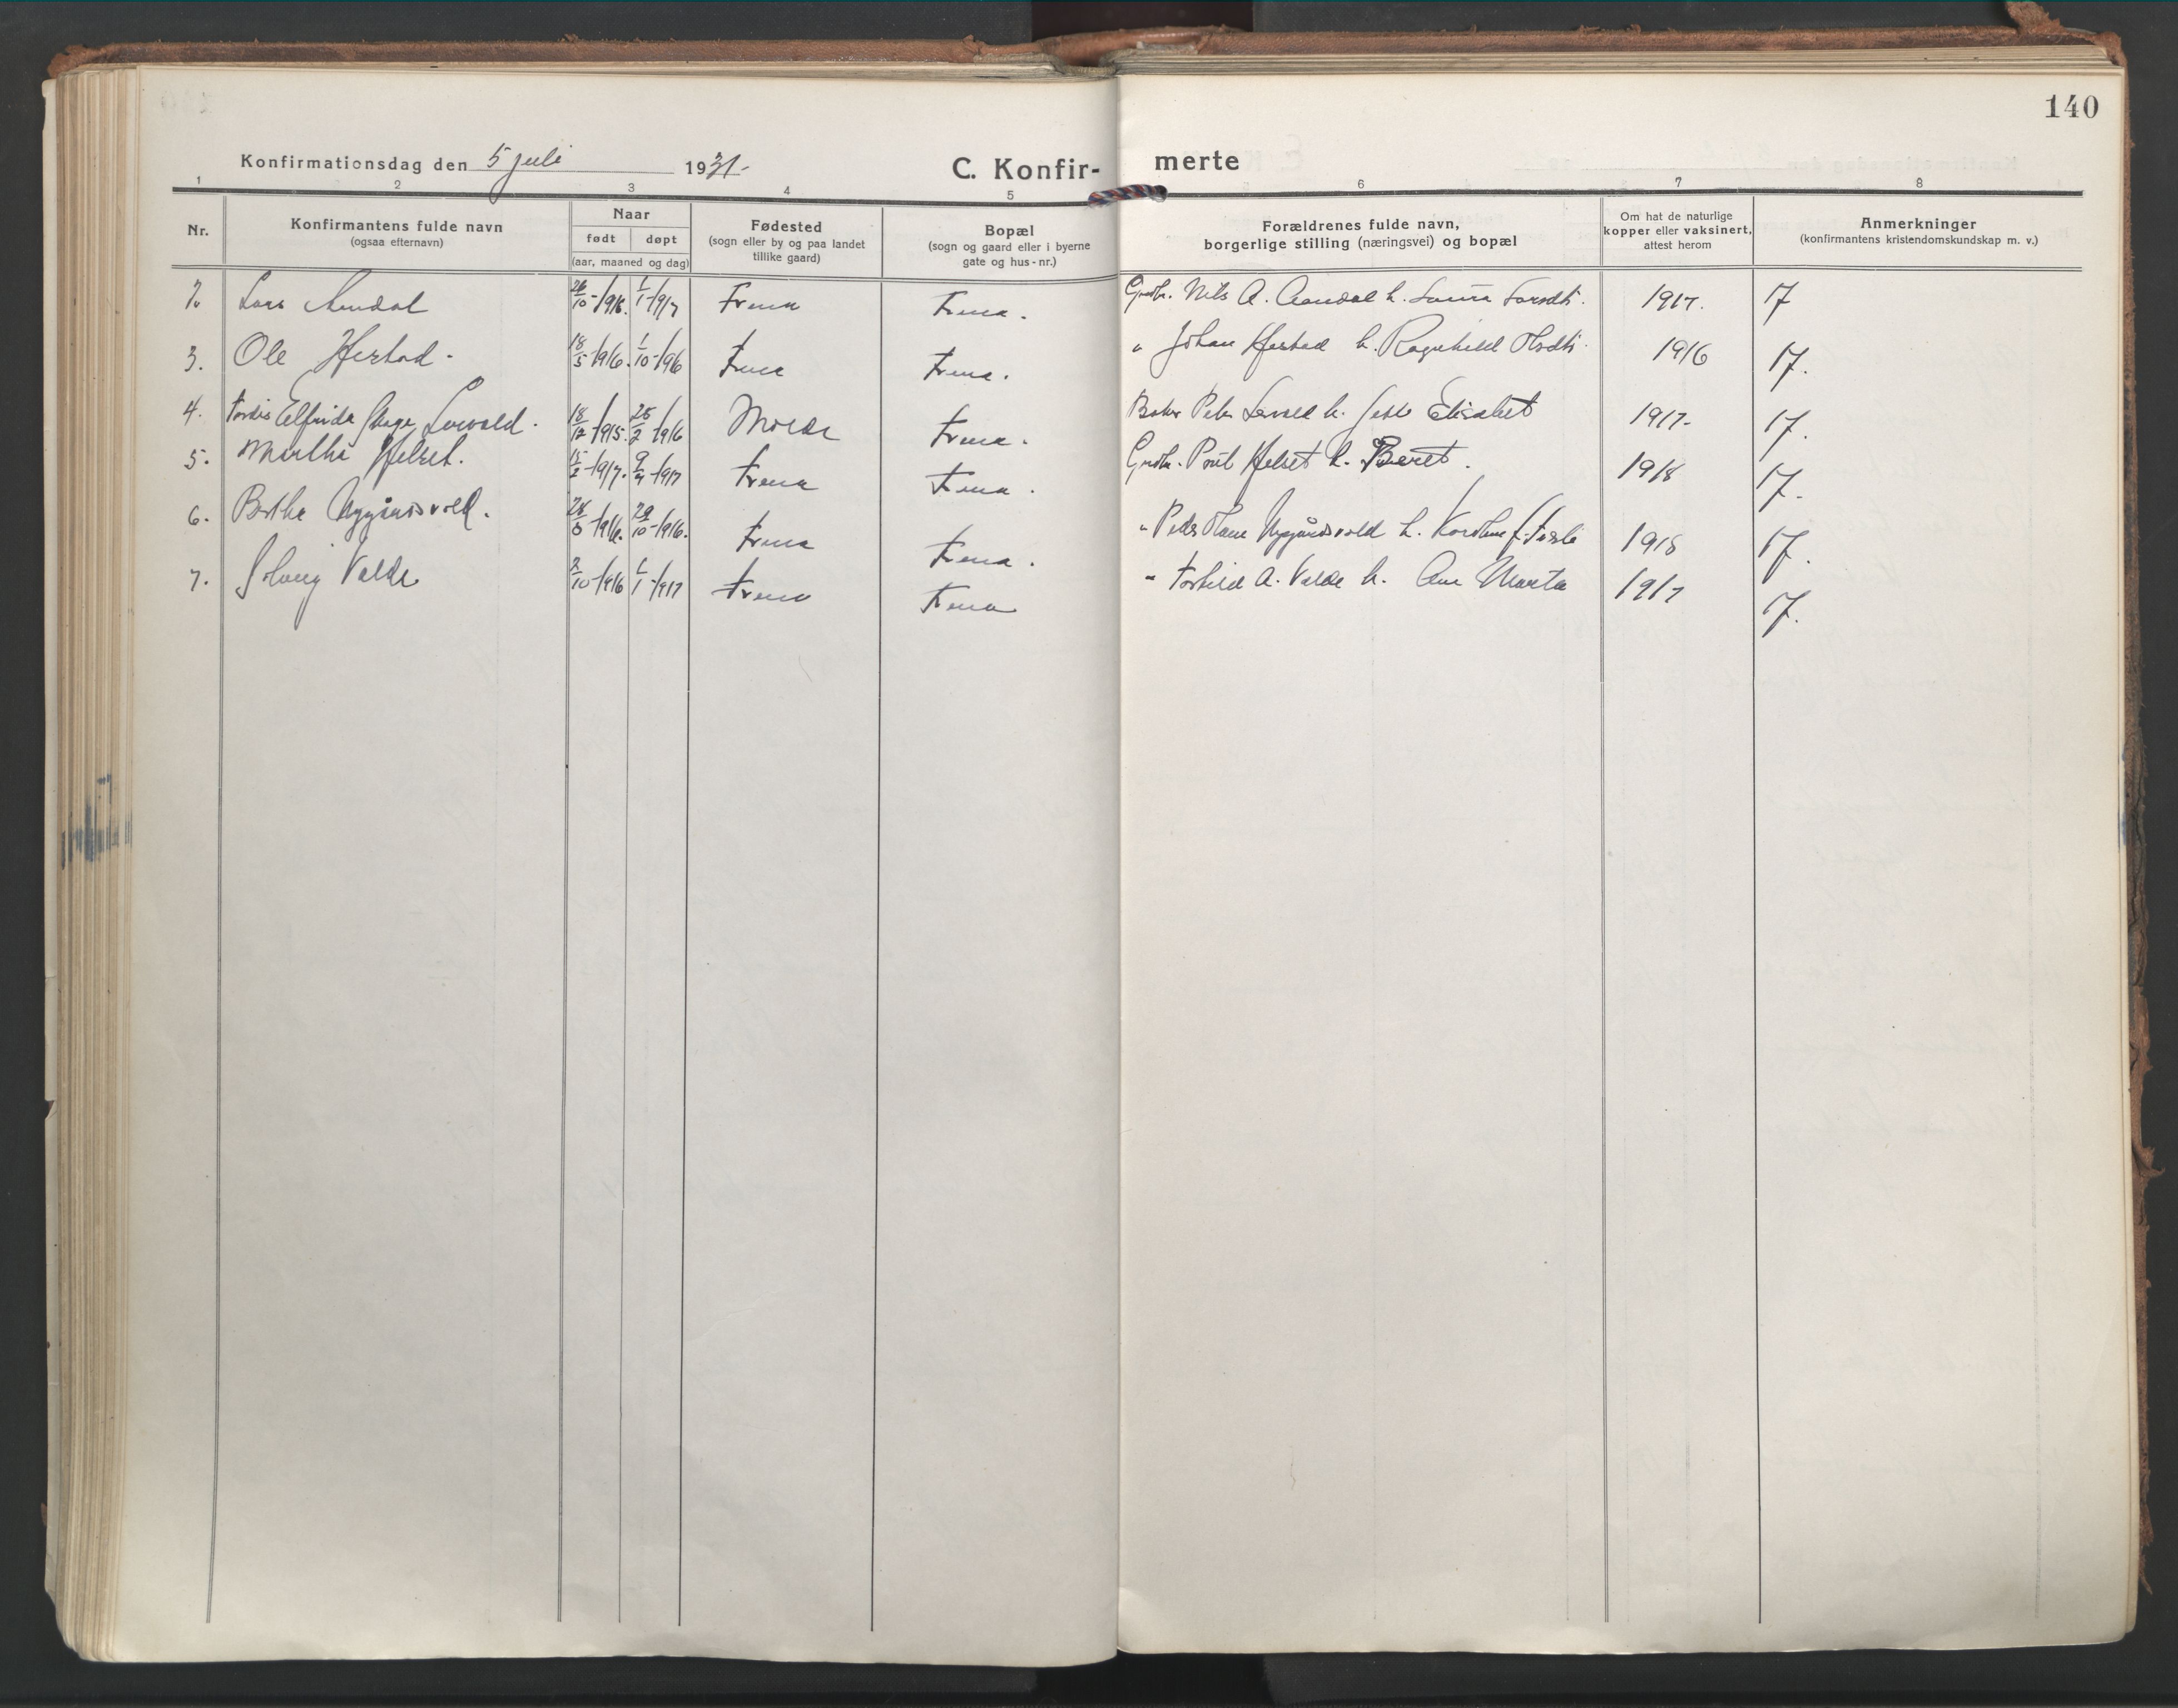 140
Konfirmationsdag den 5 juli 1931.
C. Konfirmerte
1 2 3 4 5 6 7 8
Nr.
Konfirmantens fulde navn
(ogsaa efternavn)
Naar
født døpt
(aar, maaned og dag)
Fødested
(sogn eller by og paa landet
tillike gaard)
Bopæl
(sogn og gaard eller i byerne
gate og hus-nr.)
Forældrenes fulde navn,
borgerlige stilling (næringsvei) og bopæl
Om hat de naturlige
kopper eller vaksinert,
attest herom
Anmerkninger
(konfirmantens kristendomskundskap m. v.)
Lars 26/10-1916. 1/1-1917 Fræna Fræna. Grdbr. Nils A. Aandal h. Laura Larsdtr. 1917. 17
3. Ole Hestad. 18/5-1916. 1/10-1916 Fræna Fræna. " Johan Hestad h. Ragnhild Olsdtr. 1916 17.
4. Tordis Elfrida Lervold. 18/12-1915. 25/2-1916 Molde Fræna. Baker Peter h. Elisabet 1917. 17.
5. Marthe Helset. 15/2-1917. 9/4-1917 Fræna Fræna. Grdbr. Poul Helset h. Beret. 1918 17.
6. Berthe Nygårdsvold. 1916. 29/10-1916. Fræna Fræna. " Peder Nygårdsvold h. 1918 17.
7. Solveig Valde 2/10-1916 1/1-1917 Fræna Fræna " Torkild A. Valde h. Ane Marta 1917 17.